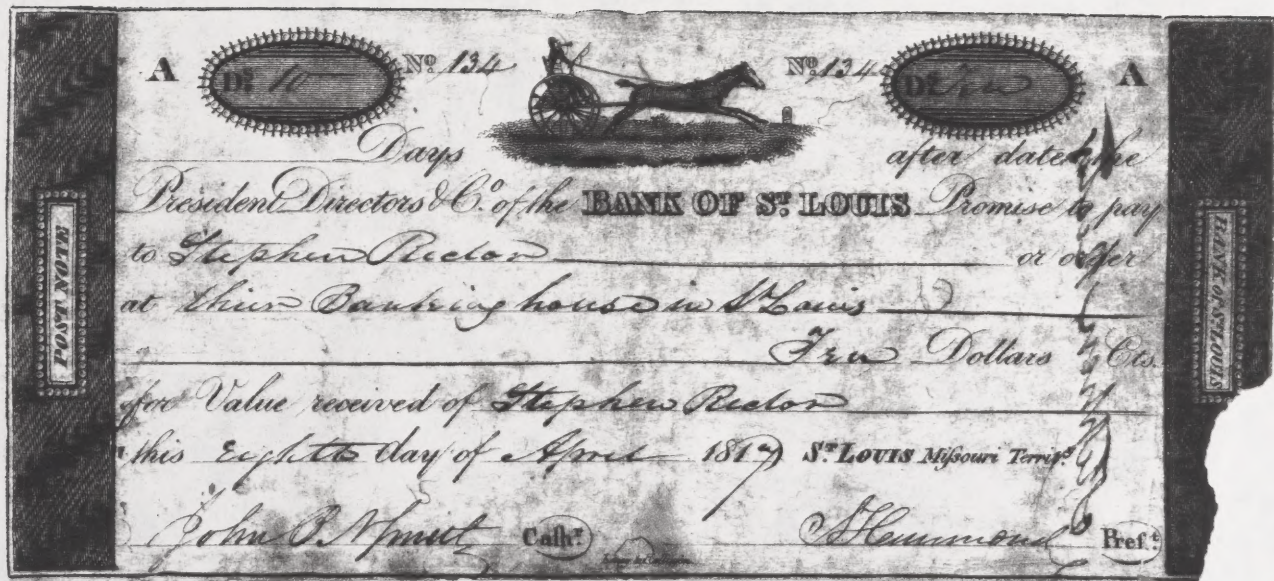 A Ds. 10 No. 134 No. 134 Ds. Ten A
Days after date the
President Directors & Co. of the BANK OF St. LOUIS Promise to pay
to Stephen Rector or order
at their Banking house in St Louis
Ten Dollars Cts.
for Value received of Stephen Rector
this Eighth day of April 1817 St. LOUIS Missouri Territy.
John B. N. Smith Cashr. S Hammond Prest.
POST NOTE
BANK OF ST LOUIS